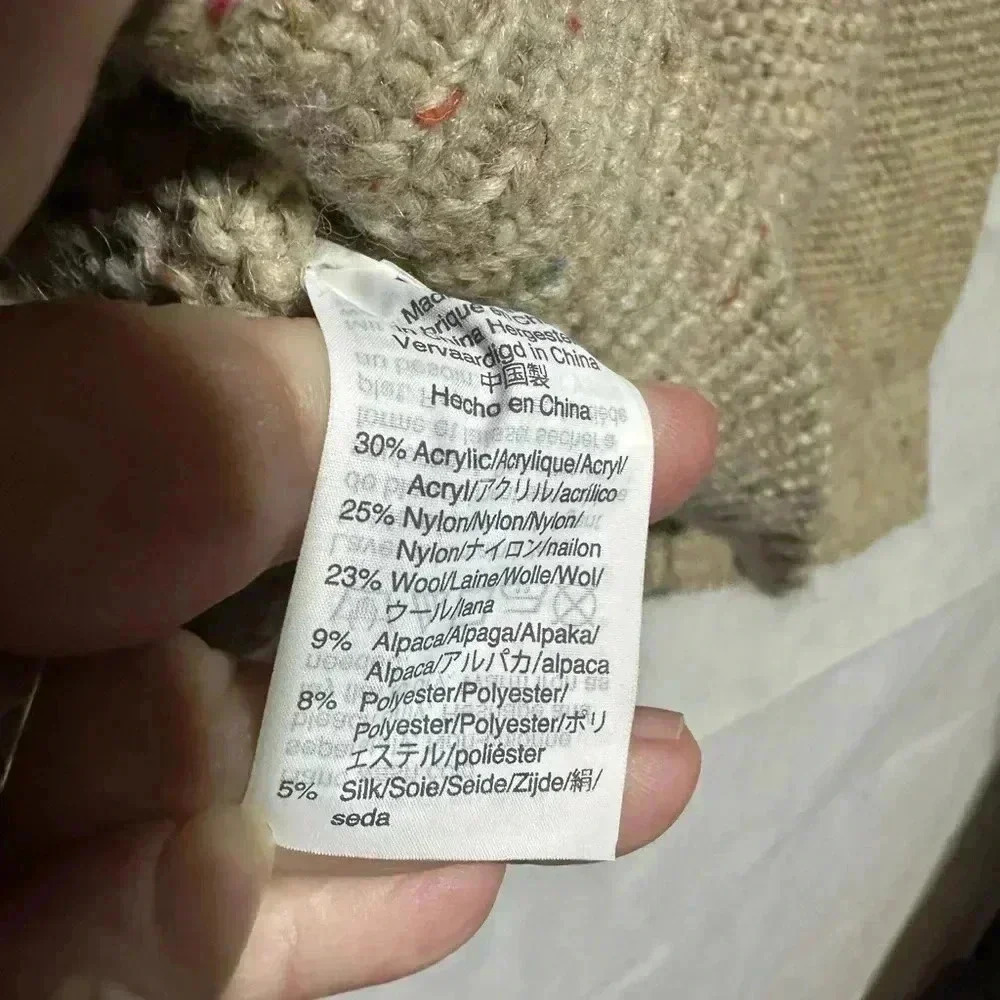 in China Hergeste
Vervaardigd in China
中国製
Hecho en China
30% Acrylic/Acrylique/Acryl/
Acryl/アクリル/acrílico
25% Nylon/Nylon/Nylon/
Nylon/ナイロン/nailon
23% Wool/Laine/Wolle/Wol/
ウール/lana
9% Alpaca/Alpaga/Alpaka/
Alpaca/アルパカ/alpaca
8% Polyester/Polyester/
Polyester/Polyester/ポリ
エステル/poliéster
5% Silk/Soie/Seide/Zijde/絹/
seda